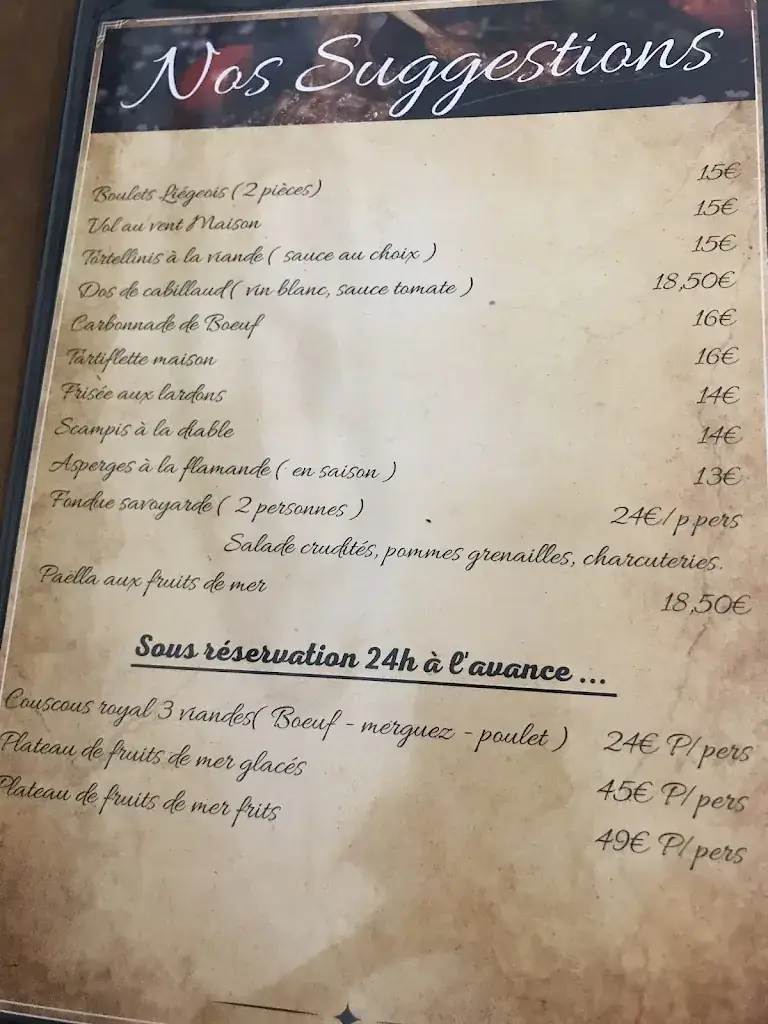 Nos Suggestions
Boulets Liégeois ( 2 pièces) 15€
Vol au vent Maison 15€
Tortellinis à la viande ( sauce au choix ) 15€
Dos de cabillaud ( vin blanc, sauce tomate ) 18,50€
Carbonnade de Boeuf 16€
Tartiflette maison 16€
Frisée aux lardons 14€
Scampis à la diable 14€
Asperges à la flamande ( en saison ) 13€
Fondue savoyarde ( 2 personnes ) 24€/ p pers
Salade crudités, pommes grenailles, charcuteries.
Paëlla aux fruits de mer 18,50€
Sous réservation 24h à l'avance ...
Couscous royal 3 viandes( Boeuf - merguez - poulet ) 24€ P/ pers
Plateau de fruits de mer glacés 45€ P/ pers
Plateau de fruits de mer frits 49€ P/ pers